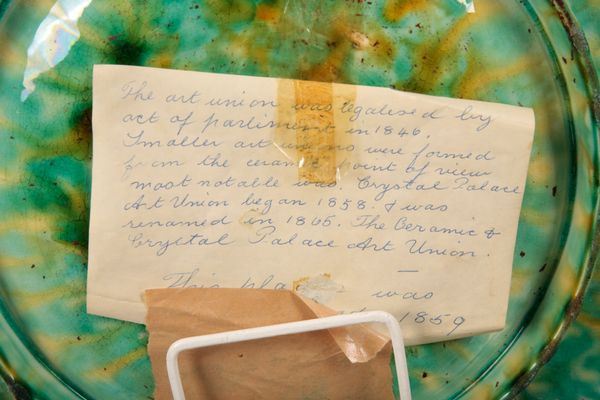 The art union was legalised by
act of parliment in 1846.
Smaller art unions were formed
from the ceramic point of view
most notable was. Crystal Palace
Art Union began 1858. & was
renamed in 1865. The Ceramic &
Crystal Palace Art Union.
This was
1859